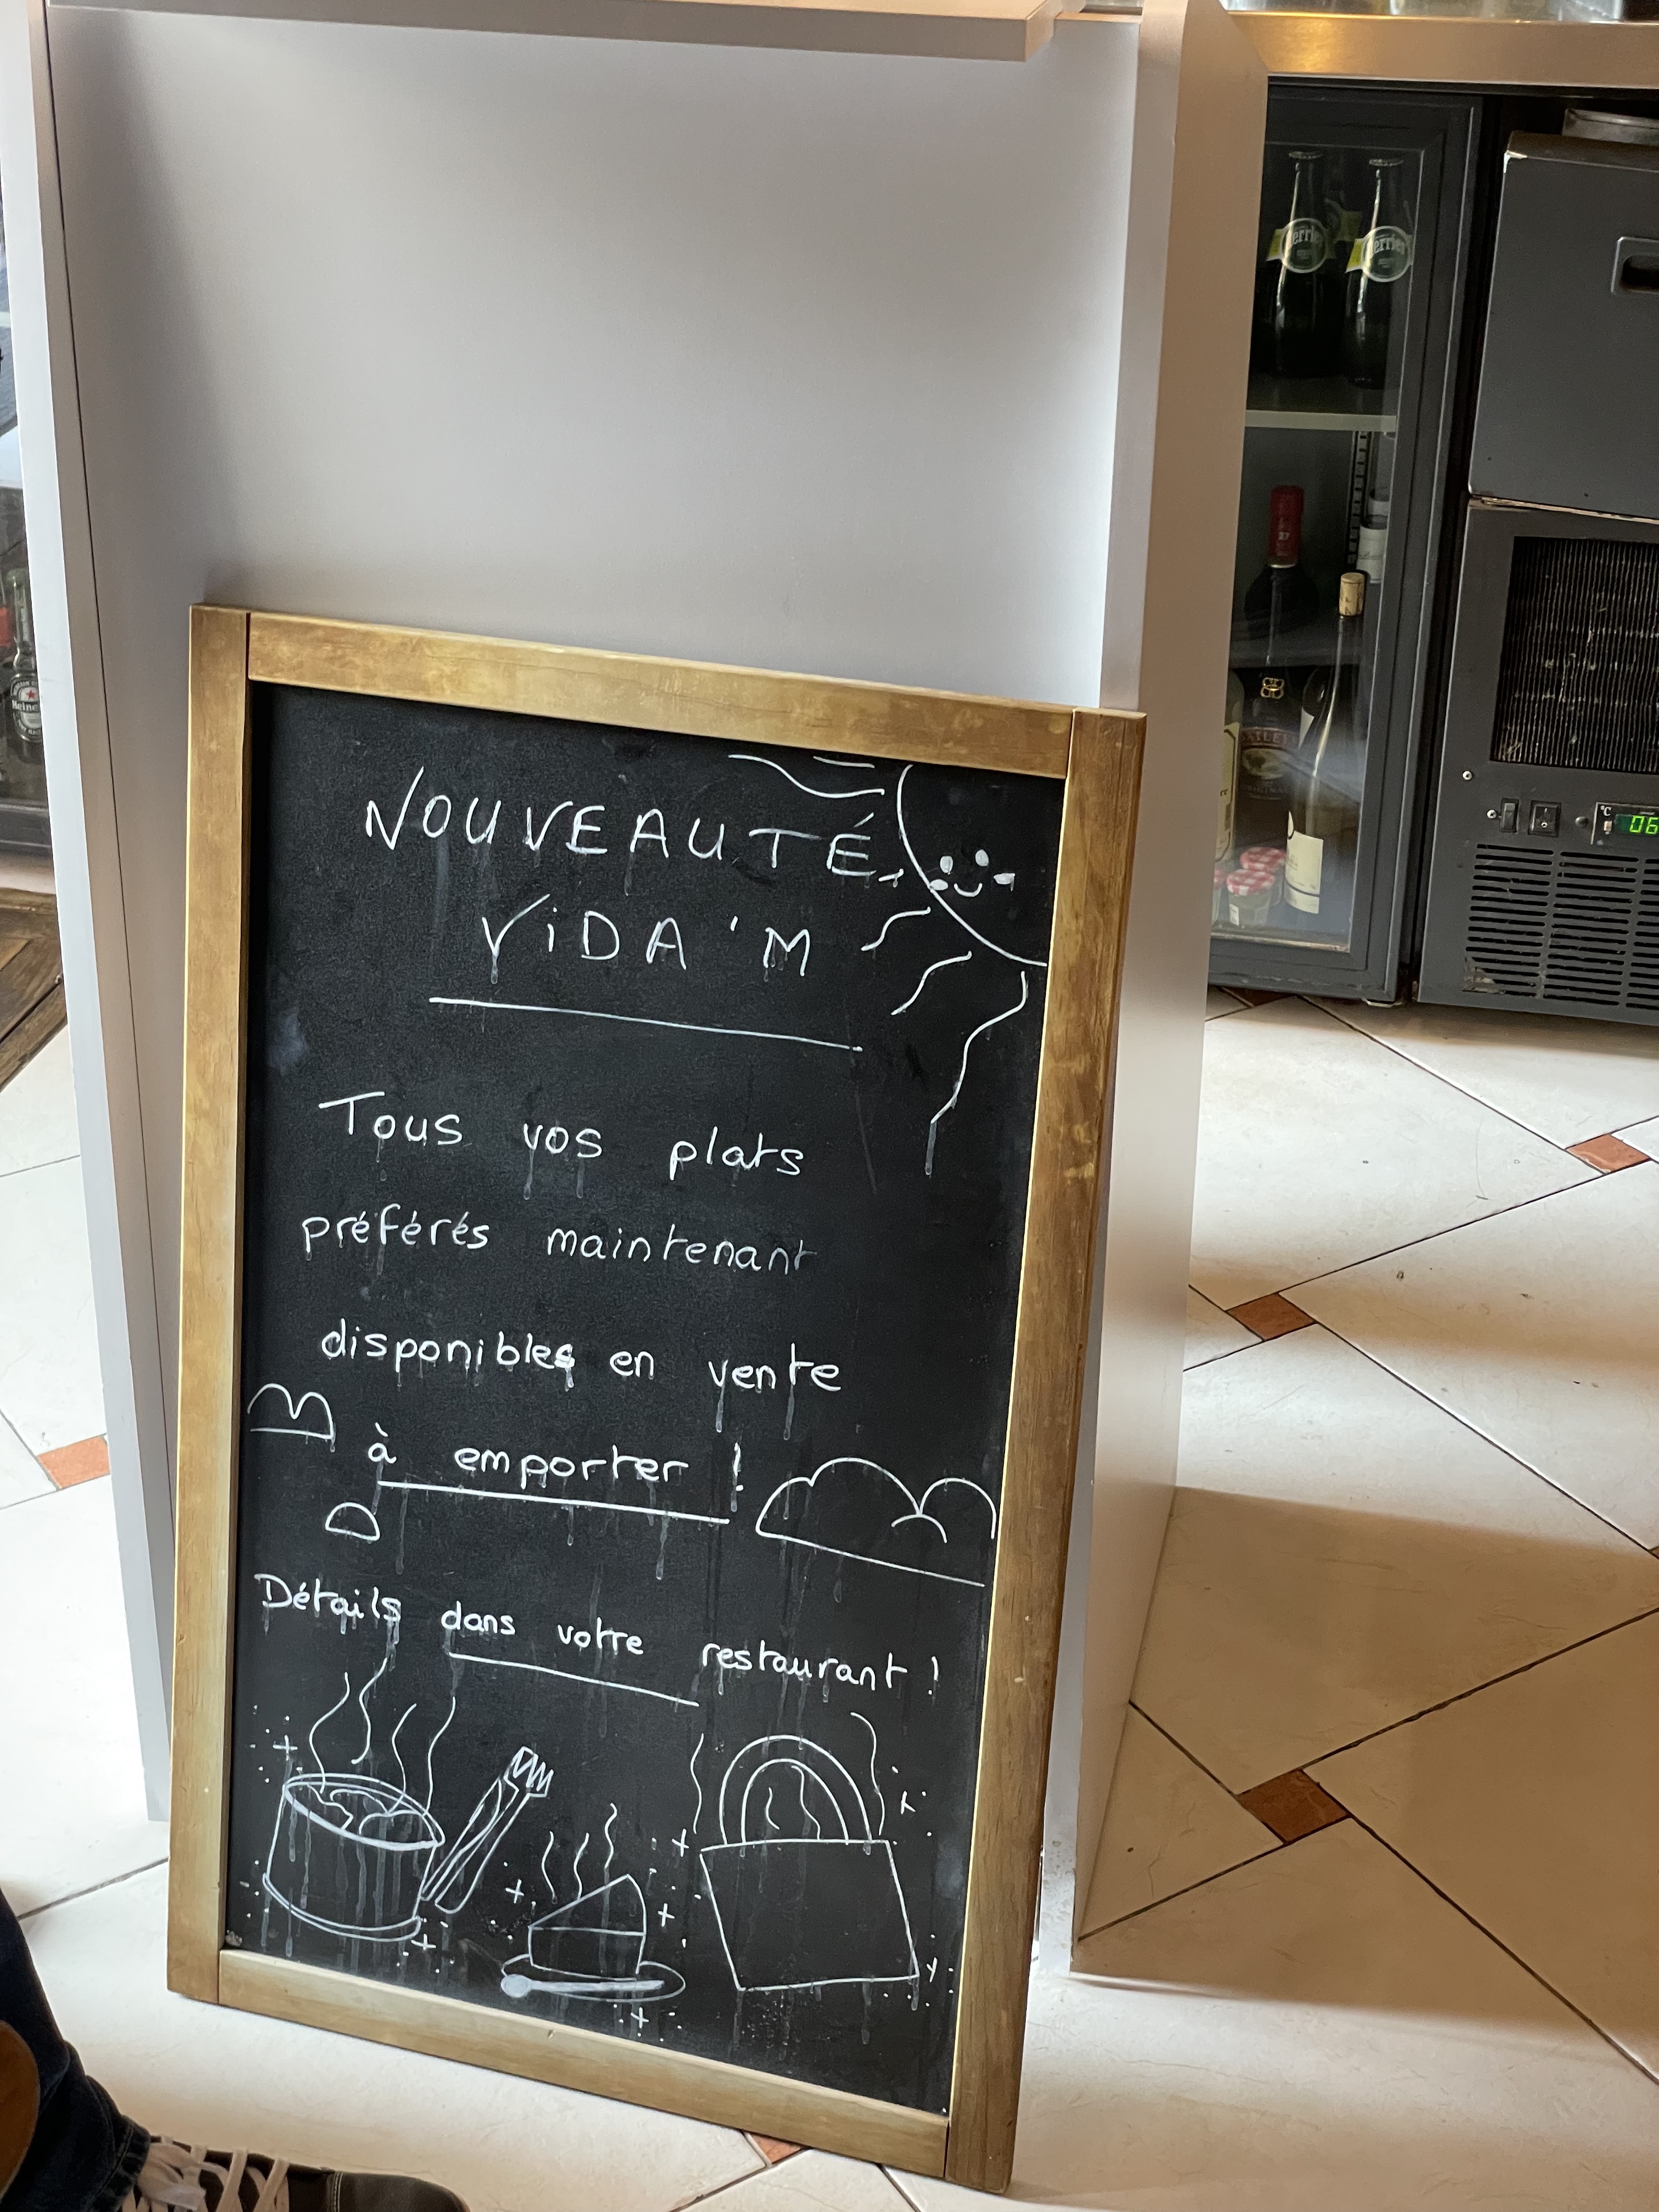 NOUVEAUTÉ
ViDA'M
Tous vos plats
préférés maintenant
disponibles en vente
à emporter !
Détails dans votre restaurant !
Perrier
Perrier
Heine
27
06
°C